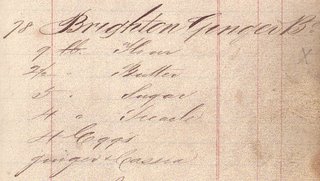 78 Brighton Ginger Bd
9 lb Flour
" Butter
" Sugar
4 " Treacle
4 Eggs
ginger & Cassia